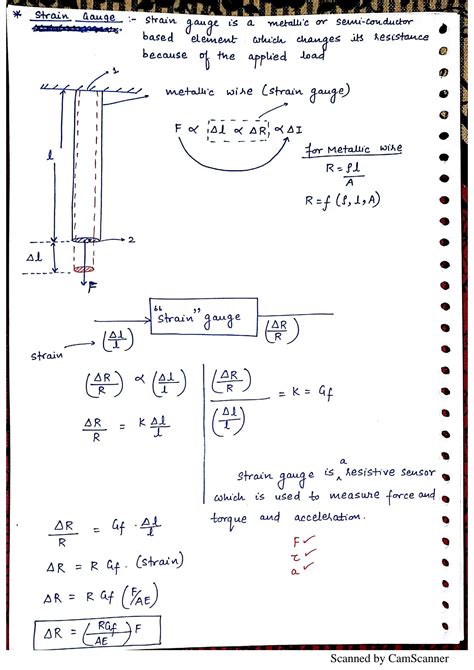 * Strain Gauge :- Strain gauge is a metallic or semi-conductor
based element which changes its resistance
because of the applied load
1
metallic wire (strain gauge)
F ∝ Δl ∝ ΔR ∝ ΔI
for Metallic wire
R = ρl/A
R = f (ρ, l, A)
l
2
Δl
F
"Strain" gauge
(ΔR/R)
strain (Δl/l)
(ΔR/R) ∝ (Δl/l)
(ΔR/R)/(Δl/l) = K = Gf
ΔR/R = K Δl/l
Strain gauge is a resistive sensor
which is used to measure force and
torque and acceleration.
F ✓
τ ✓
a ✓
ΔR/R = Gf · Δl/l
ΔR = R Gf · (strain)
ΔR = R Gf (F/AE)
ΔR = (RGf/AE) F
Scanned by CamScanner